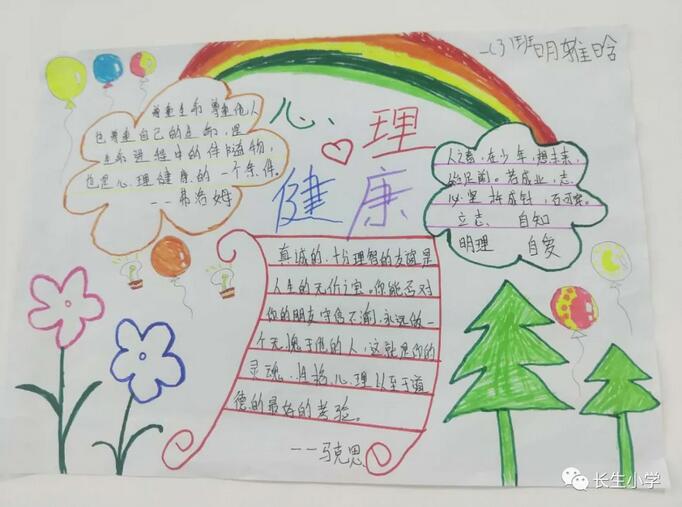 一(3)班明雅晗
心理
健康
尊重生命尊重他人
也尊重自己的生命,是
生命进程中的伴随物,
也是心理健康的一个条件。
--弗洛姆
人之者,在少年,想未来,
始足前。若成业,志
必坚
立志 自知
明理 自爱
真诚的、十分理智的友谊是
人生的无价之宝。你能否对
你的朋友守信不渝,永远做一
个无愧于他的人,这就是你的
灵魂、性格、心理以至于道
德的最好的考验。
--马克思
长生小学